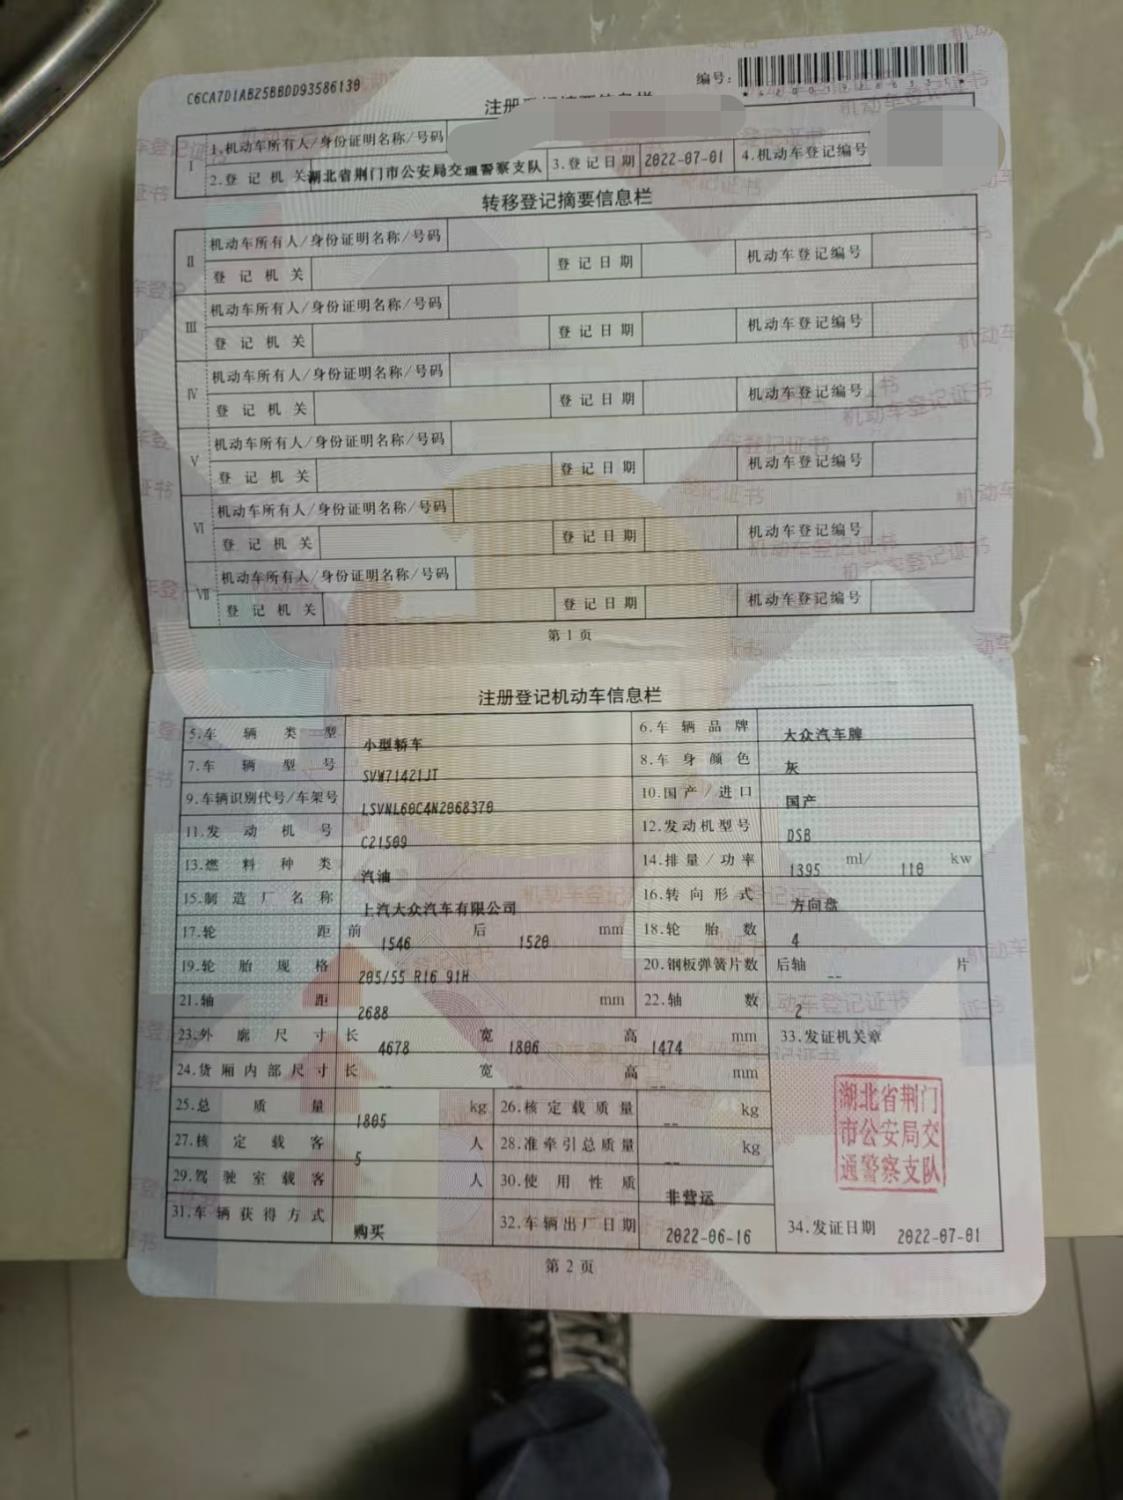 C6CA7D1AB25BBDD93586139
编号:
注册登记摘要信息栏
Ⅰ 1.机动车所有人/身份证明名称/号码
2.登记机关 湖北省荆门市公安局交通警察支队 3.登记日期 2022-07-01 4.机动车登记编号
转移登记摘要信息栏
Ⅱ 机动车所有人/身份证明名称/号码
登记机关 登记日期 机动车登记编号
Ⅲ 机动车所有人/身份证明名称/号码
登记机关 登记日期 机动车登记编号
Ⅳ 机动车所有人/身份证明名称/号码
登记机关 登记日期 机动车登记编号
Ⅴ 机动车所有人/身份证明名称/号码
登记机关 登记日期 机动车登记编号
Ⅵ 机动车所有人/身份证明名称/号码
登记机关 登记日期 机动车登记编号
Ⅶ 机动车所有人/身份证明名称/号码
登记机关 登记日期 机动车登记编号
第 1 页
注册登记机动车信息栏
5.车辆类型 小型轿车 6.车辆品牌 大众汽车牌
7.车辆型号 SVW71421JT 8.车身颜色 灰
9.车辆识别代号/车架号 LSVNL60C4N2068370 10.国产/进口 国产
11.发动机号 C21509 12.发动机型号 DSB
13.燃料种类 汽油 14.排量/功率 1395 ml/ 110 kw
15.制造厂名称 上汽大众汽车有限公司 16.转向形式 方向盘
17.轮距 前 1546 后 1520 mm 18.轮胎数 4
19.轮胎规格 205/55 R16 91H 20.钢板弹簧片数 后轴 -- 片
21.轴距 2688 mm 22.轴数 2
23.外廓尺寸 长 4678 宽 1806 高 1474 mm 33.发证机关章
24.货厢内部尺寸 长 -- 宽 -- 高 -- mm
25.总质量 1805 kg 26.核定载质量 -- kg
27.核定载客 5 人 28.准牵引总质量 -- kg
29.驾驶室载客 人 30.使用性质 非营运
31.车辆获得方式 购买 32.车辆出厂日期 2022-06-16 34.发证日期 2022-07-01
湖北省荆门
市公安局交
通警察支队
第 2 页